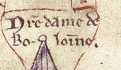 Nr̃e dame de
Bo-loine.